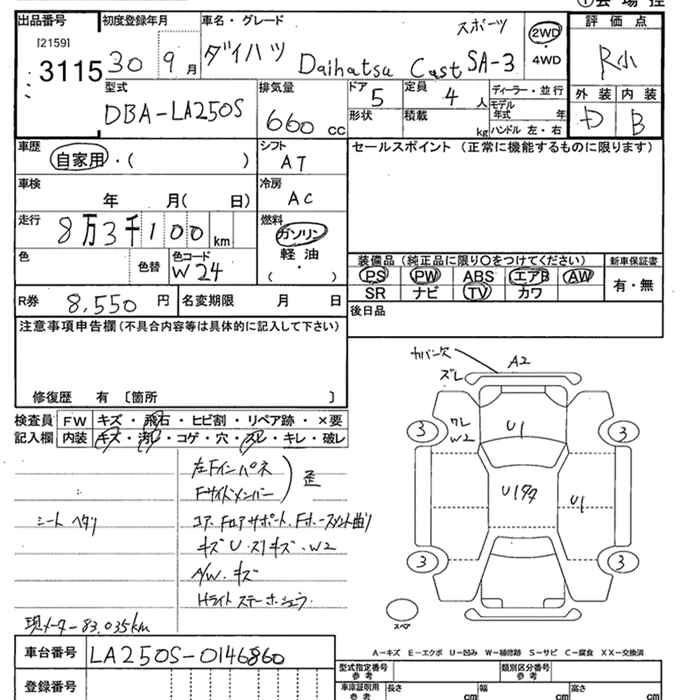 ①会場控
出品番号 初度登録年月 車名・グレード 評価点
[2159]
3115 30 9月 ダイハツ Daihatsu Cast スポーツ SA-3 2WD ・4WD R小
型式 排気量 ドア 定員 ディーラー・並行 外装 内装
DBA-LA250S 660cc 5 4人 モデル年式 年 D B
形状 積載 kg ハンドル 左・右
車歴 シフト セールスポイント(正常に機能するものに限ります)
自家用・( ) AT
車検 冷房
年 月( 日) AC
走行 燃料
8万3千100km ガソリン
軽油
・
( )
色 色替 色コード
W24
装備品(純正品に限り○をつけてください) 新車保証書
PS PW ABS エアB AW 有・無
SR ナビ TV カワ
R券 8,550円 名変期限 月 日
後日品
注意事項申告欄(不具合内容等は具体的に記入して下さい)
修復歴 有 〔箇所 〕
検査員 FW キズ・飛石・ヒビ割・リペア跡・×要
記入欄 内装 キズ・汚れ・コゲ・穴・スレ・キレ・破レ
左Fインパネ
Fサイドメンバー
歪
シート ヘタリ
コアFロアサポート、Fホースメント曲り
キズU・スリキズ・W2
A/W・キズ
Hライトステー
現メーター 83,035km
カバー欠
ズレ
A2
クレ
W2
U1
3
3
U1
3
3
スペア
A－キズ E－エクボ U－凹み W－補修跡 S－サビ C－腐食 XX－交換済
車台番号 LA250S-0146860
登録番号
型式指定番号 参考 類別区分番号 参考
車庫証明用 参考 長さ cm 幅 cm 高さ cm